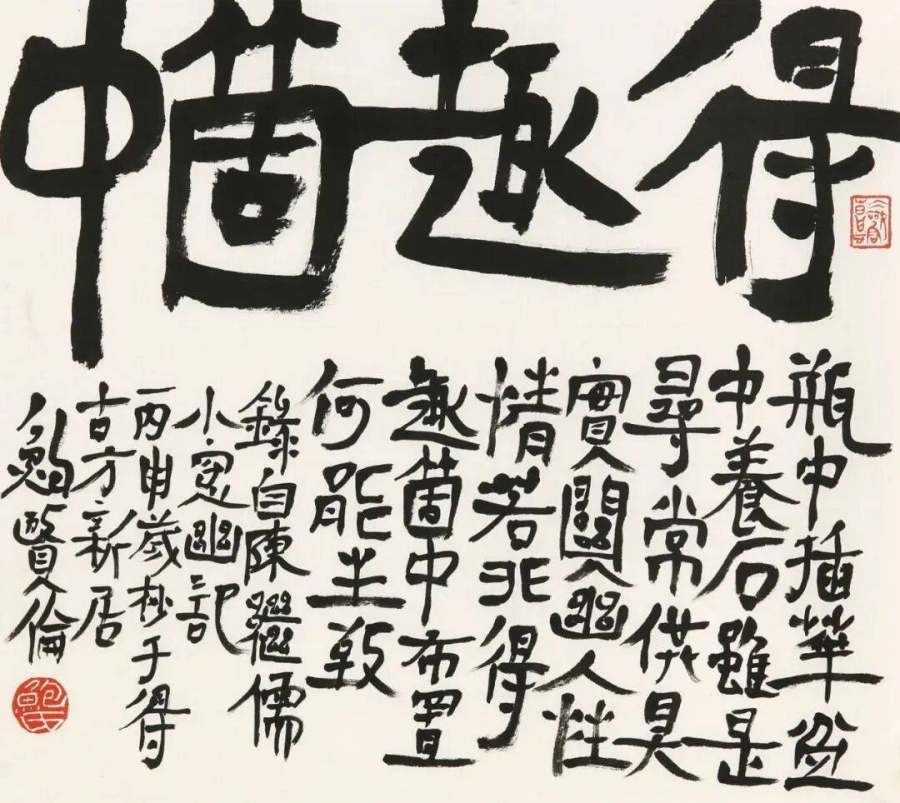 得趣箇中
瓶中插華盆
中養石雖是
尋常供具
實關幽人性
情若非得
趣箇中布置
何能生致
錄自陳繼儒
小窗幽記
丙申歲杪于得
古方新居
鮑賢倫